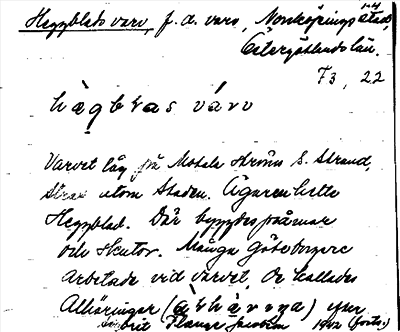 Heggblads varv, f. d. varv, Norrköpings stad,
Östergötlands län.
73, 22
hägbras varv
Varvet låg på Motala ströms S. Strand,
strax utom staden. Ägaren hette
Heggblad. Där byggdes pråmar
och skutor. Många göteborgare
arbetade vid varvet, de kallades
Allhäringar ( ) efter
1902 (forts.)